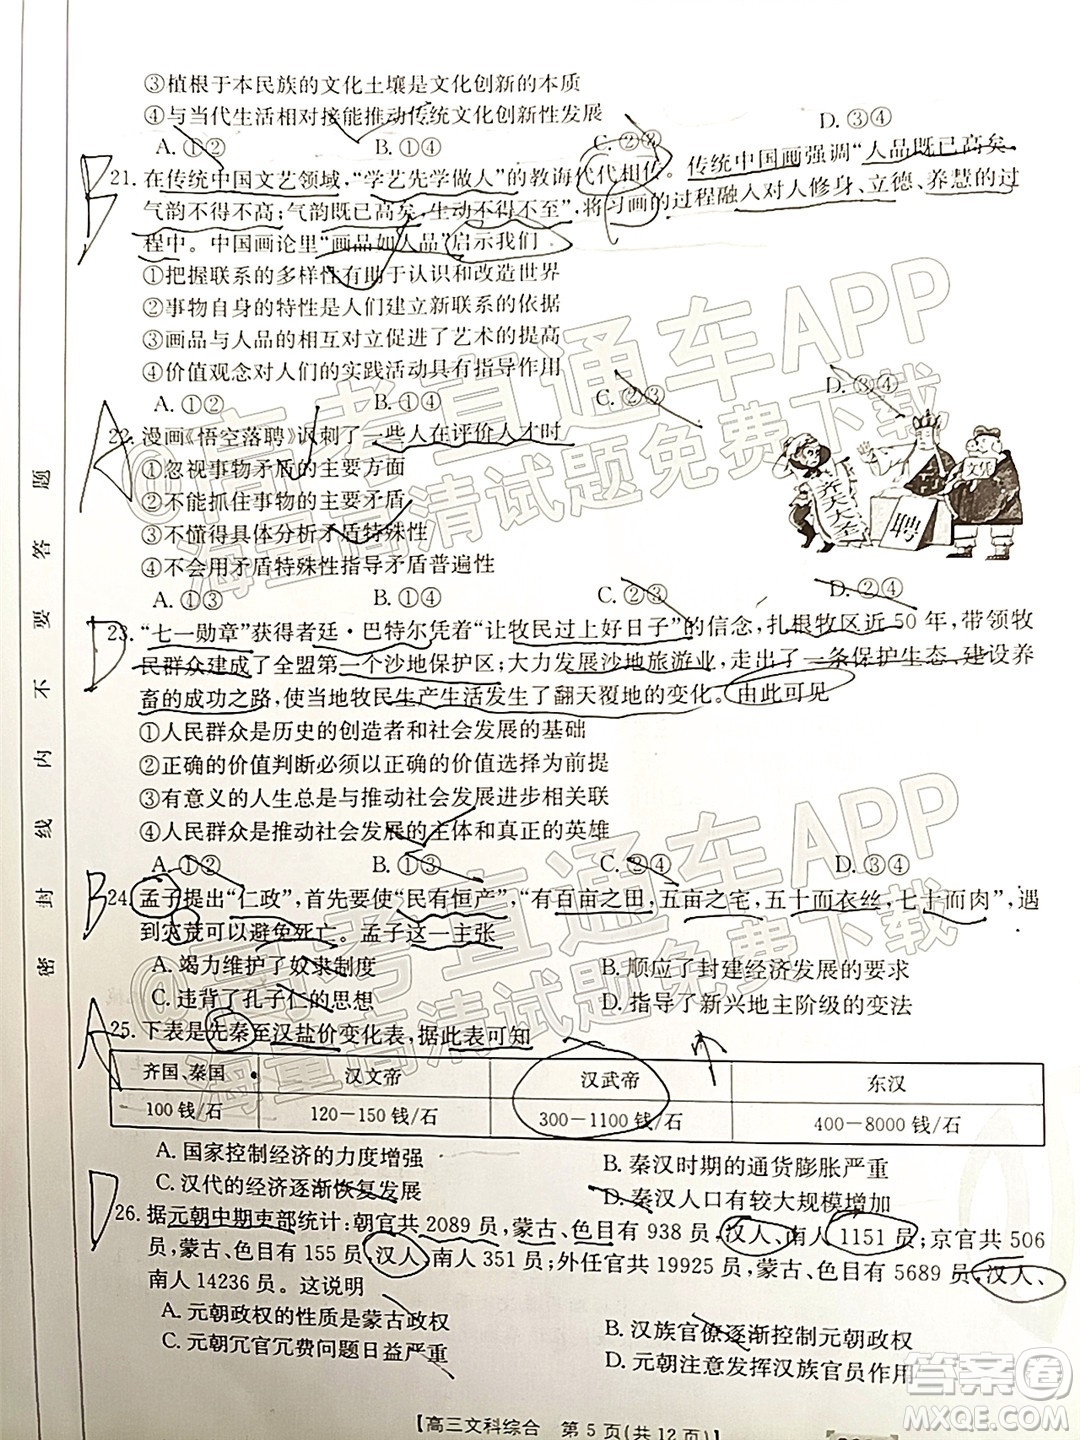 ③植根于本民族的文化土壤是文化创新的本质
④与当代生活相对接能推动传统文化创新性发展
A. ①② B. ①④ C. ②③ D. ③④
21. 在传统中国文艺领域,“学艺先学做人”的教诲代代相传。传统中国画强调“人品既已高矣,
气韵不得不高;气韵既已高矣,生动不得不至”,将习画的过程融入对人修身、立德、养慧的过
程中。中国画论里“画品如人品”启示我们
①把握联系的多样性有助于认识和改造世界
②事物自身的特性是人们建立新联系的前提
③画品与人品的相互对立促进了艺术的提高
④价值观念对人们的实践活动具有指导作用
A. ①② B. ①④ C. ②③ D. ③④
22. 漫画《悟空落聘》讽刺了一些人在评价人才时
①忽视事物矛盾的主要方面
②不能抓住事物的主要矛盾
③不懂得具体分析矛盾特殊性
④不会用矛盾特殊性指导矛盾普遍性
A. ①③ B. ①④ C. ②③ D. ②④
齐天大圣
聘
文凭
23. “七一勋章”获得者廷·巴特尔凭着“让牧民过上好日子”的信念,扎根牧区近 50 年,带领牧
民群众建成了全盟第一个沙地保护区;大力发展沙地旅游业,走出了一条保护生态、建设养
畜的成功之路,使当地牧民生产生活发生了翻天覆地的变化。由此可见
①人民群众是历史的创造者和社会发展的基础
②正确的价值判断必须以正确的价值选择为前提
③有意义的人生总是与推动社会发展紧密相关联
④人民群众是推动社会发展的主体和真正的英雄
A. ①② B. ①③ C. ②④ D. ③④
24. 孟子提出“仁政”,首先要使“民有恒产”,“有百亩之田,五亩之宅,五十而衣丝,七十而肉”,遇
到灾荒可以避免死亡。孟子这一主张
A. 竭力维护了奴隶制度 B. 顺应了封建经济发展的要求
C. 违背了孔子仁的思想 D. 指导了新兴地主阶级的变法
25. 下表是先秦至汉盐价变化表,据此表可知
齐国、秦国 汉文帝 汉武帝 东汉
100 钱/石 120-150 钱/石 300-1100 钱/石 400-8000 钱/石
A. 国家控制经济的力度增强 B. 秦汉时期的通货膨胀严重
C. 汉代的经济逐渐恢复发展 D. 秦汉人口有较大规模增加
26. 据元朝中期吏部统计:朝官共 2089 员,蒙古、色目有 938 员,汉人、南人 1151 员;京官共 506
员,蒙古、色目有 155 员,汉人、南人 351 员;外任官共 19925 员,蒙古、色目有 5689 员,汉人、
南人 14236 员。这说明
A. 元朝政权的性质是蒙古政权 B. 汉族官僚逐渐控制元朝政权
C. 元朝冗官冗费问题日益严重 D. 元朝注意发挥汉族官员作用
【高三文科综合 第 5 页(共 12 页)】
密 封 线 内 不 要 答 题
B
A
D
B
A
D
@高考直通车APP
海量高清试题免费下载
@高考直通车APP
海量高清试题免费下载
答案圈
MXQE.COM